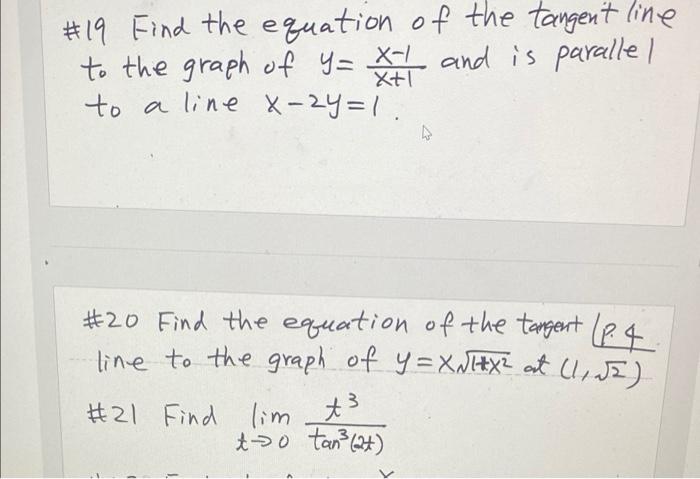 #19 Find the equation of the tangent line
to the graph of y = x-1/x+1 and is parallel
to a line x-2y=1.
#20 Find the equation of the tangent
P.4
line to the graph of y=x√1+x² at (1,√2)
#21 Find lim t→0 t³/tan³(2t)